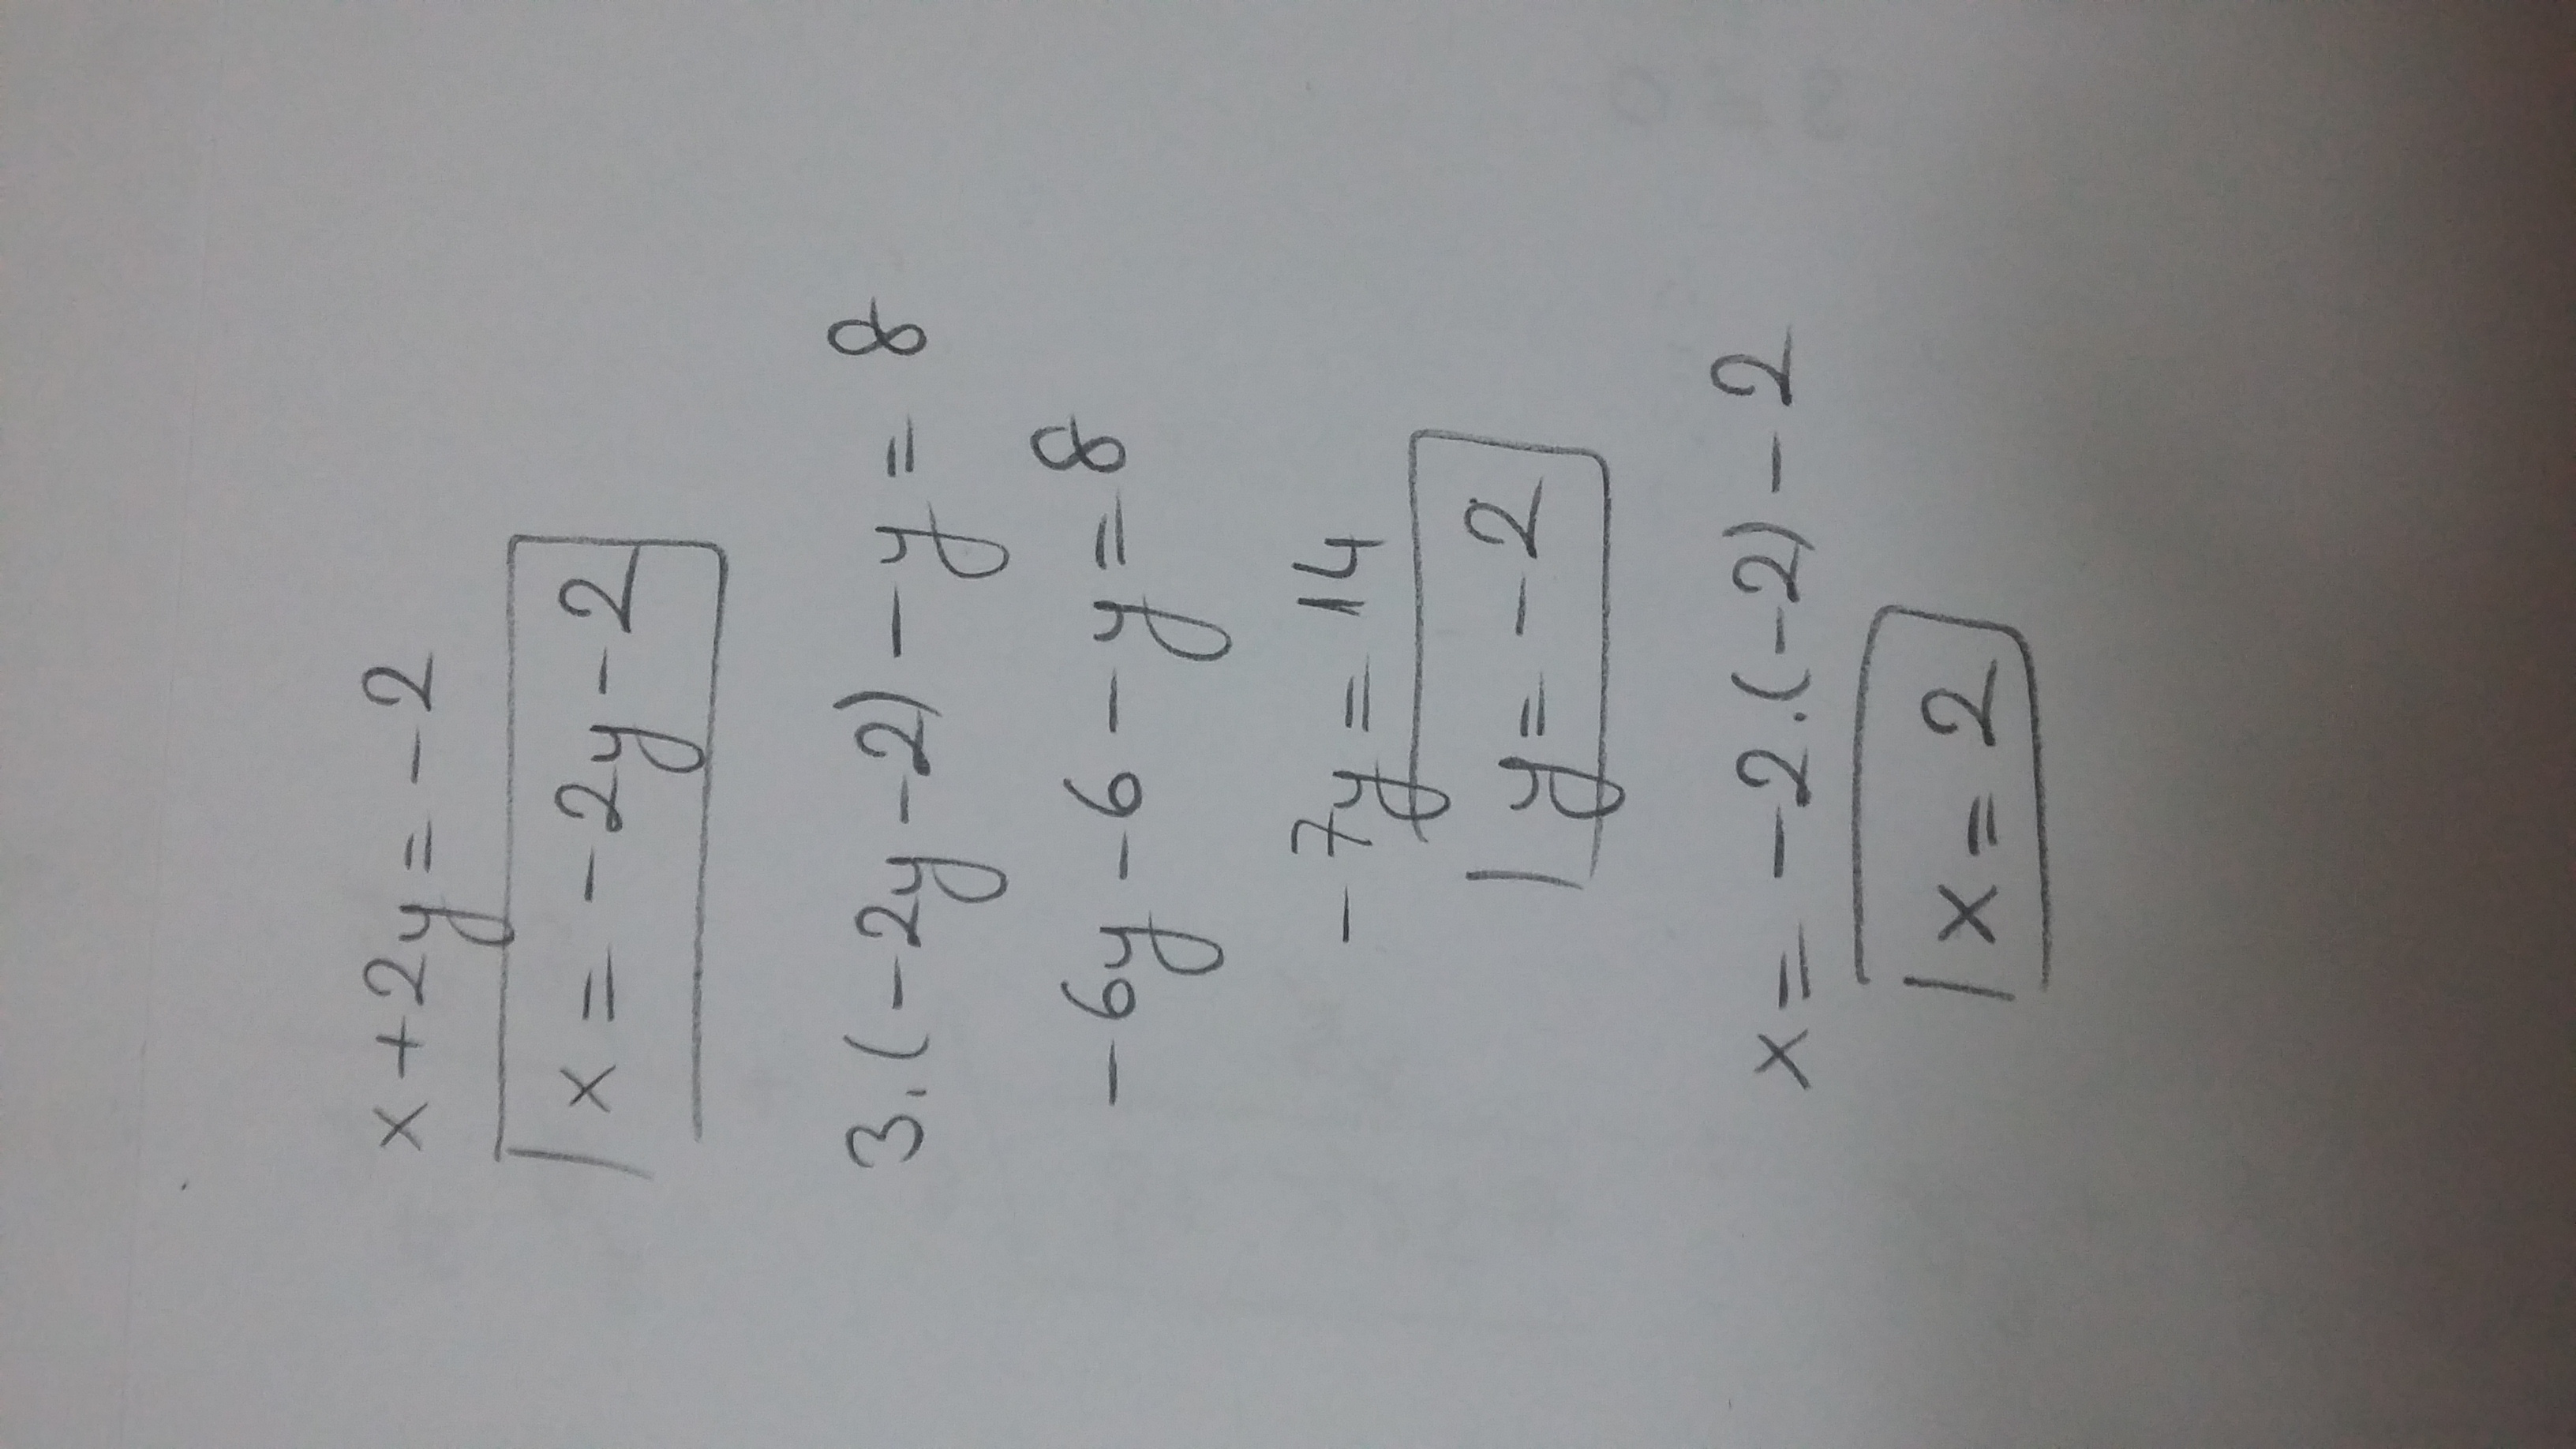 x + 2y = -2
x = -2y - 2
3.(-2y - 2) - y = 8
-6y - 6 - y = 8
-7y = 14
y = -2
x = -2.(-2) - 2
x = 2